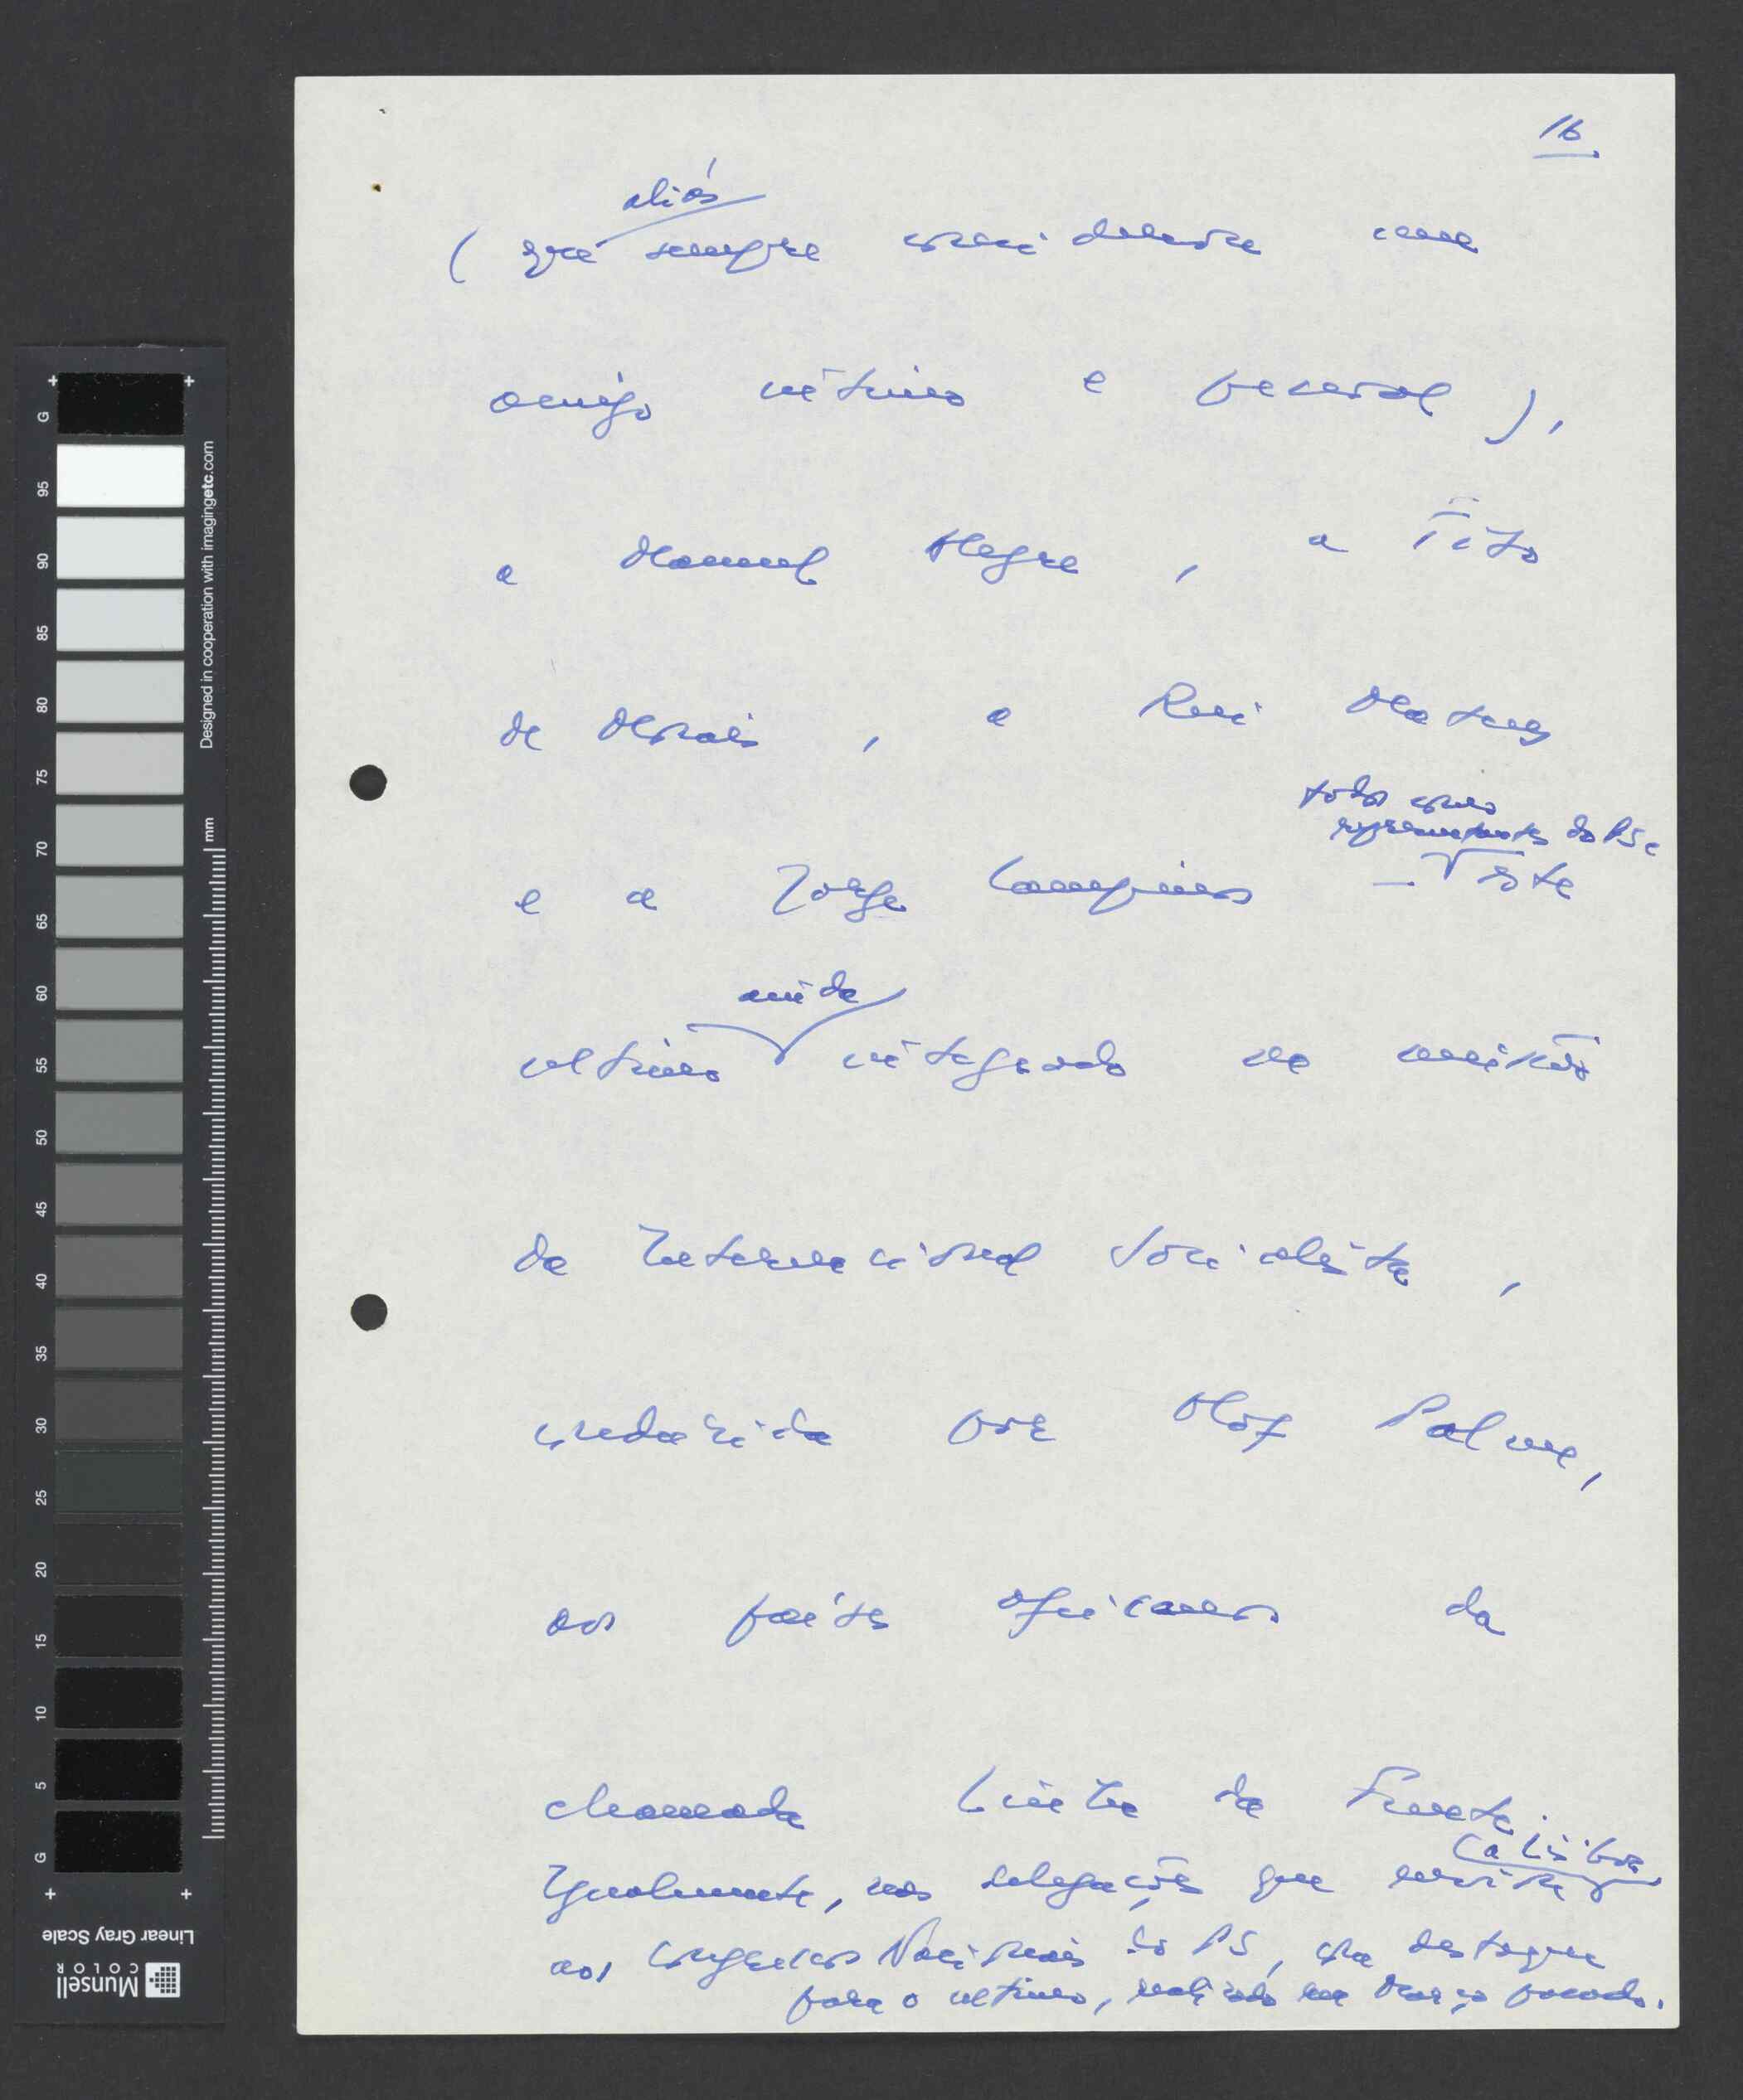 16.
aliás
( que sempre considerou um
amigo íntimo e pessoal ),
a Manuel Alegre, a Tito
de Morais, a Rui Mateus
todos como
representantes do PS e
e a Jorge Campinos – este
ainda
ultimo integrado na missão
da Internacional Socialista,
conduzida por Olof Palme,
aos países africanos da
chamada Linha da Frente.
a Lisboa
Igualmente, nas delegações que enviou
aos Congressos Nacionais do PS, com destaque
para o ultimo, realizado em Março passado.
G 95 90 85 80 75 70 65 60 55 50 45 40 35 30 25 20 15 10 5 G
mm
Designed in cooperation with imagingetc.com
Linear Gray Scale
Munsell
COLOR